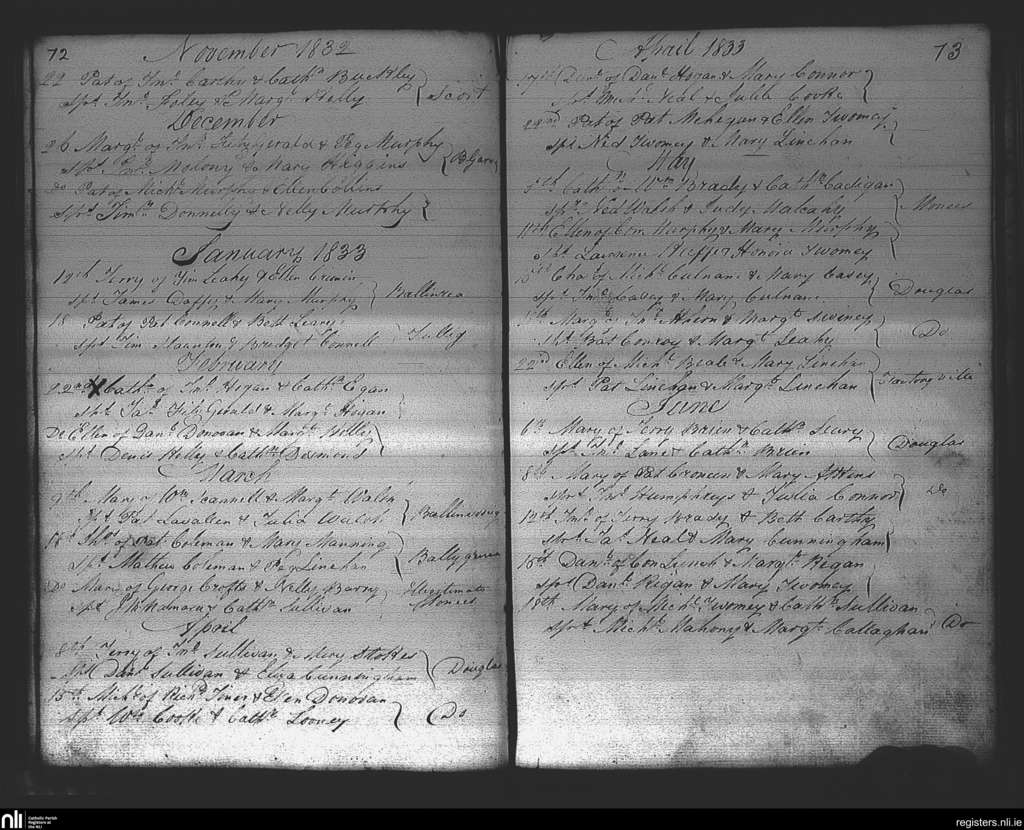 72
November 1832
22 Pat of Jnº Carthy & Cathn Buckley
Spt Jnº Foley & Margt Kelly
Scoit
December
26 Margt of Jnº Fitzgerald & Peg Murphy
Spt Molony & Mary Higgins
Do Pat of Michl Murphy & Ellen Collins
Spt Timy Donnelly & Nelly Murphy
January 1833
12th Terry of Tim Leahy & Ellen Cronin
Spt James Duffy & Mary Murphy
Ballinrea
18 Pat of Pat Connell & Bess Leary
Spt Tim & Bridget Connell
Tullig
February
Cathn of Jnº Hogan & Cathn Egan
Spt Jas Fitz Gerald & Margt Hogan
Do Ellen of Danl Donovan & Margt
Spt Denis Kelly & Cathn Desmond
March
9th Mary of Wm Scannell & Margt Walsh
Spt Pat & Julia Walsh
of Pat Coleman & Mary Manning
Spt Mathew Coleman & Peg Linehan
Do Mary of George Crofts & Nelly Barry
Illegitimate
Spt McNamara & Cathn Sullivan
Monees
April
8th Terry of Jnº Sullivan & Mary Stokes
Spt Danl Sullivan & Eliza Cunningham
Douglas
15th Michl of Richd & Ellen Donovan
Spt Wm Cooke & Cathn Looney
Do
April 1833
73
Danl of Danl Hogan & Mary Connor
Spt Neal & Julia Cooke
22nd Pat of Pat Mehegan & Ellen Twomey
Spt Ned Twomey & Mary Linehan
May
5th Cathn of Wm Brady & Cathn Cadigan
Spt Ned Walsh & Judy Mulcahy
Monees
11th Ellen of Corns Murphy & Mary Murphy
Spt Laurence & Honora Twomey
15th Chas of Michl Culnane & Mary Casey
Spt Jnº Casey & Mary Culnane
Douglas
Margt of Jnº Ahern & Margt Sweeney
Spt Bat Conroy & Margt Leahy
Do
22nd Ellen of Michl Beale & Mary Linehan
Spt Pat Linehan & Margt Linehan
June
6th Mary of Terry Brien & Cathn Leary
Spt Jnº Lane & Cathn Brien
Douglas
8th Mary of Pat Croneen & Mary Atkins
Spt Jnº Humphreys & Julia Connor
Do
12th Jnº of Terry Brady & Beth Carthy
Spt Jas Neal & Mary Cunningham
15th Danl of Con Lynch & Margt Regan
Spt Danl Regan & Mary Twomey
18th Mary of Michl Twomey & Cathn Sullivan
Spt Michl Mahony & Margt Callaghan
Do
nli
Catholic Parish
Registers at
the NLI
registers.nli.ie